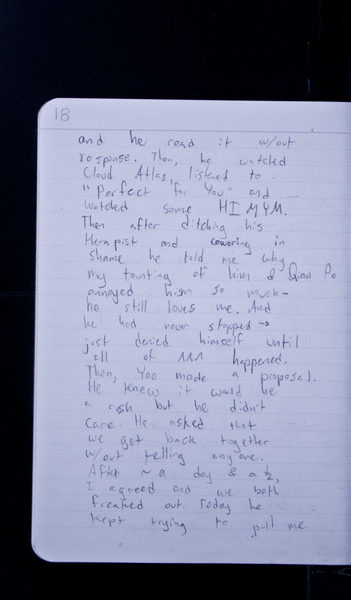 18
and he read it w/out
response. Then, he watched
Cloud Atlas, listened to
"Perfect for You" and
watched some HIMYM.
Then after ditching his
therapist and cowering in
shame he told me why
my taunting of him & Qian Po
annoyed him so much -
he still loves me. And
he had never stopped →
just denied himself until
all of happened.
Then, Yoo made a proposal.
He knew it would be
a rash but he didn't
care. He asked that
we got back together
w/out telling anyone.
After ~ a day & a ½,
I agreed and we both
freaked out. Today he
kept trying to pull me